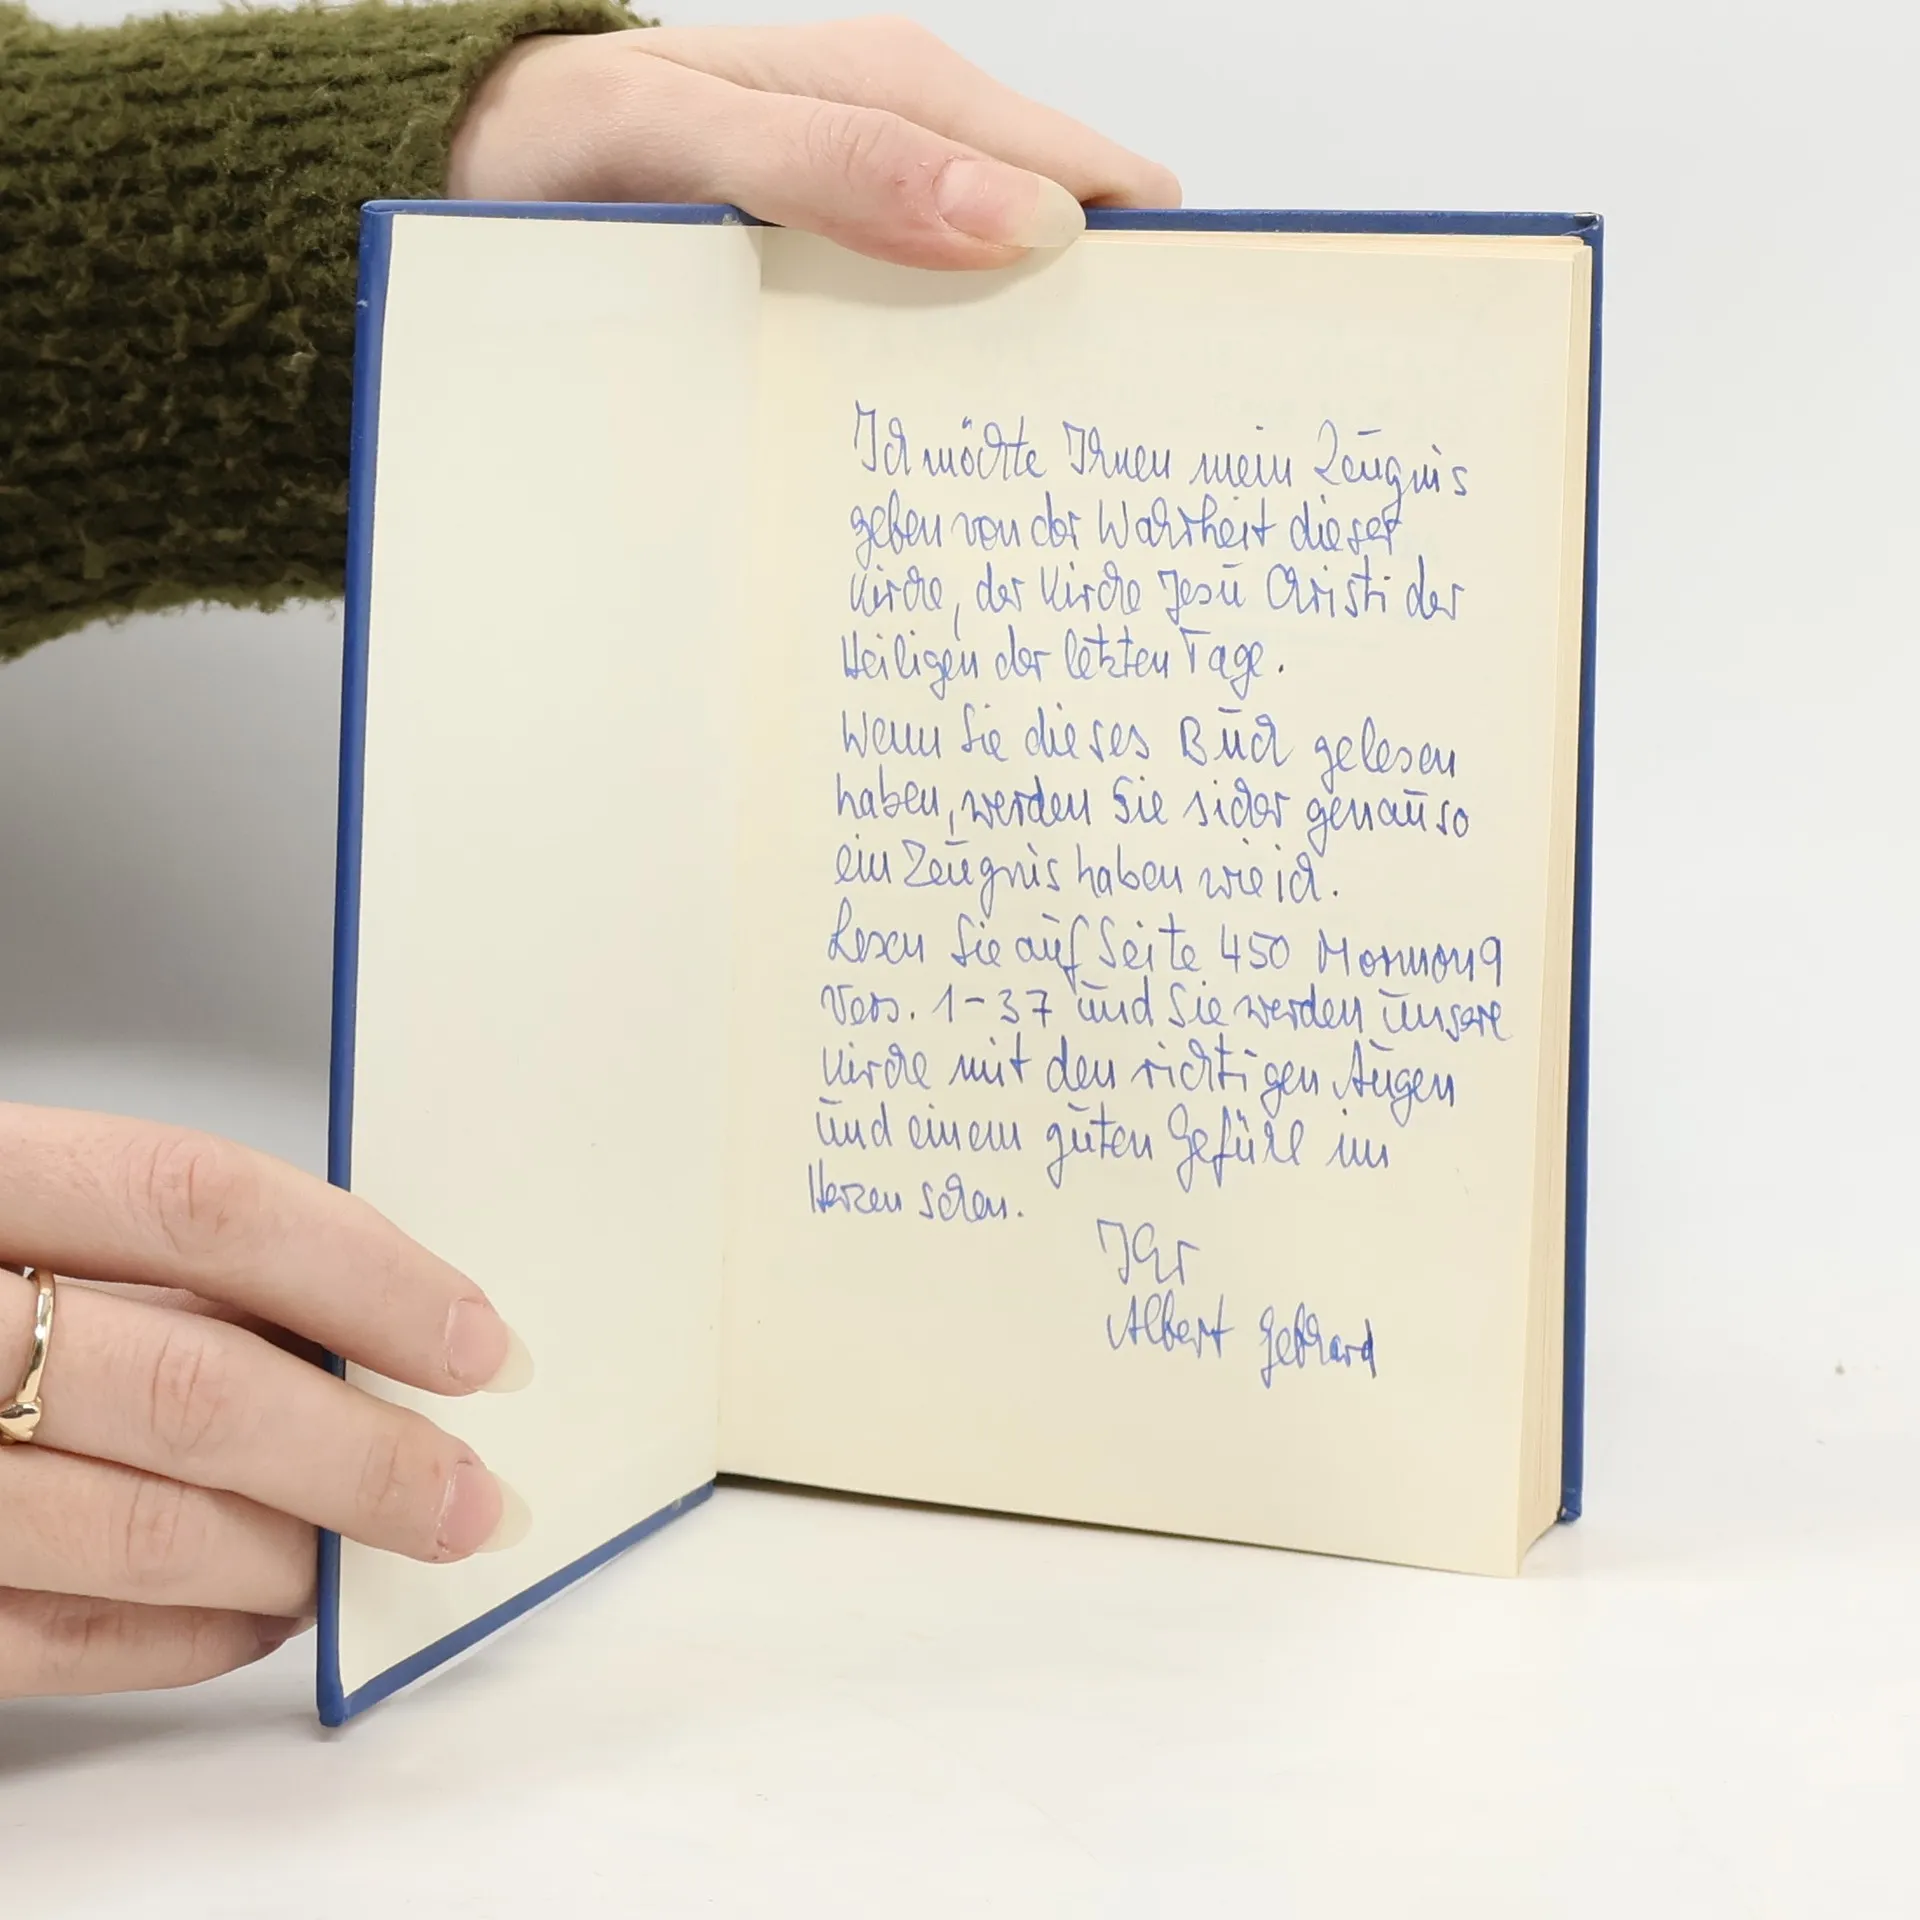 Ich möchte Ihnen mein Zeugnis
geben von der Wahrheit dieser
Kirche, der Kirche Jesu Christi der
Heiligen der letzten Tage.
Wenn Sie dieses Buch gelesen
haben, werden Sie sicher genauso
ein Zeugnis haben wie ich.
Lesen Sie auf Seite 450 Mormon 9
Vers. 1-37 und Sie werden unsere
Kirche mit den richtigen Augen
und einem guten Gefühl im
Herzen sehen.
Ihr
Albert Gebhard